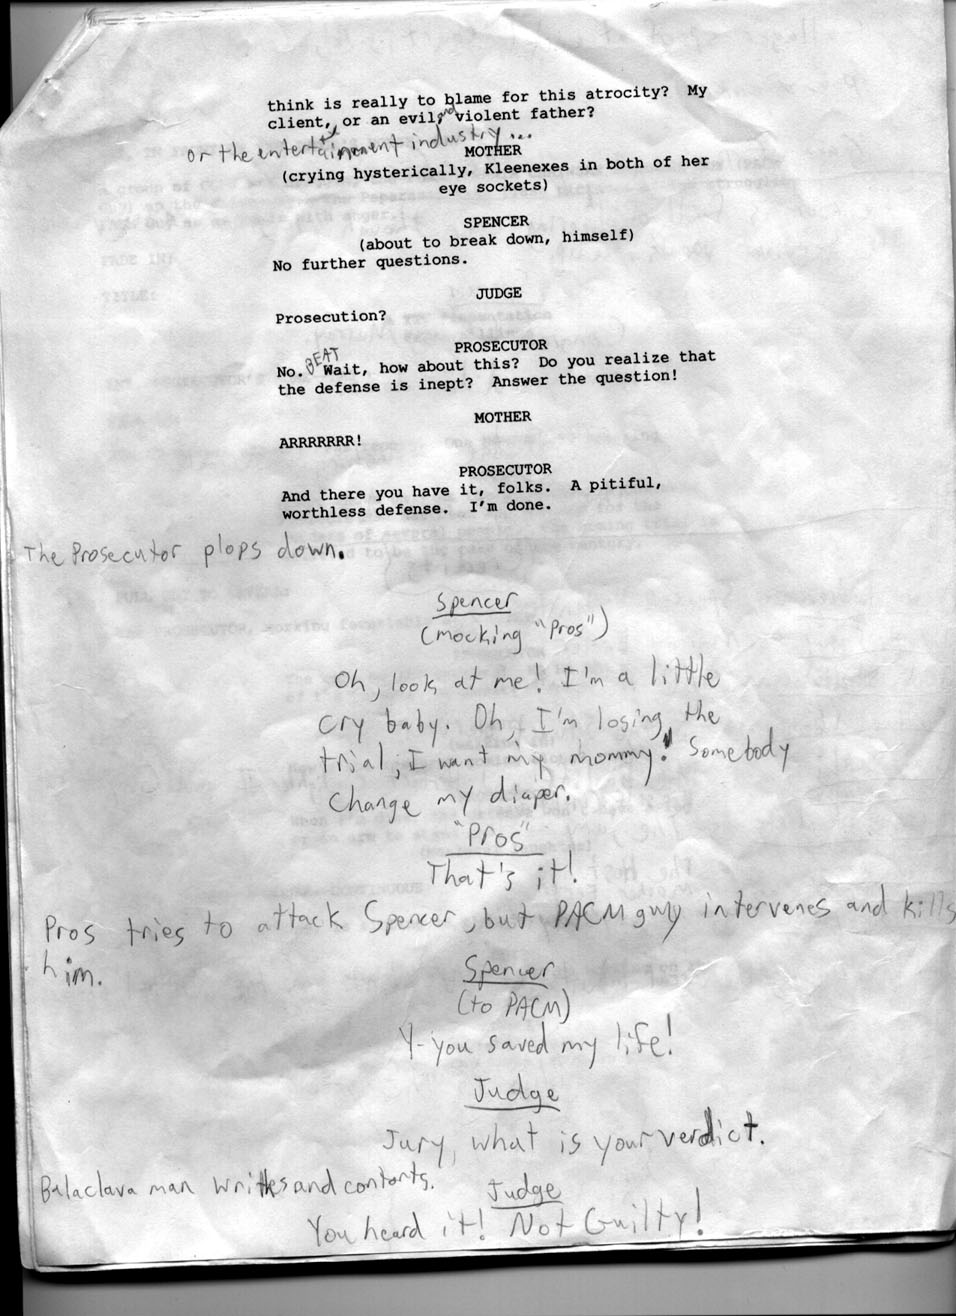 think is really to blame for this atrocity? My
client, or an evil, and violent father?
or the entertainment industry...
MOTHER
(crying hysterically, Kleenexes in both of her
eye sockets)
SPENCER
(about to break down, himself)
No further questions.
JUDGE
Prosecution?
PROSECUTOR
No. BEAT Wait, how about this? Do you realize that
the defense is inept? Answer the question!
MOTHER
ARRRRRRR!
PROSECUTOR
And there you have it, folks. A pitiful,
worthless defense. I'm done.
The Prosecutor plops down.
Spencer
(mocking "Pros")
Oh, look at me! I'm a little
cry baby. Oh, I'm losing the
trial, I want my mommy! Somebody
change my diaper.
"Pros"
That's it!
Pros tries to attack Spencer, but PACM guy intervenes and kills
him.
Spencer
(to PACM)
Y-you saved my life!
Judge
Jury, what is your verdict.
Balaclava man writhes and contorts.
Judge
You heard it! Not Guilty!